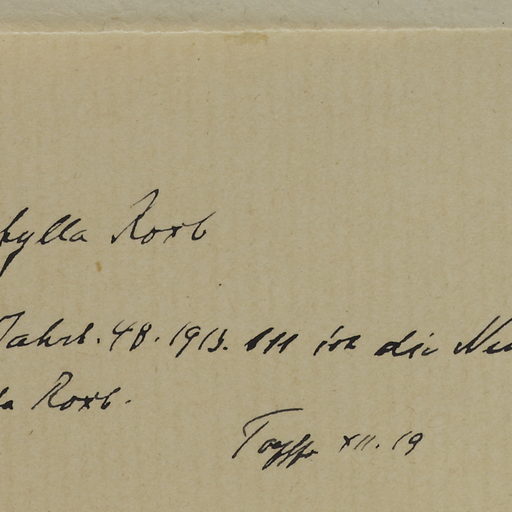 hylla Roxb
Jahrb. 48. 1913. 111 ist die Neu
la Roxb.
XII. 19